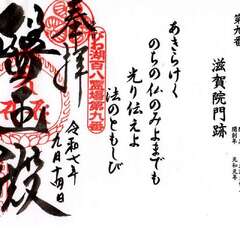 第九番
滋賀院門跡
あきらけく
のちの仏のみよまでも
光り伝えよ
法のともしび
奉拝
びわ湖百八霊場第九番
醫王殿
令和七年
九月十四日